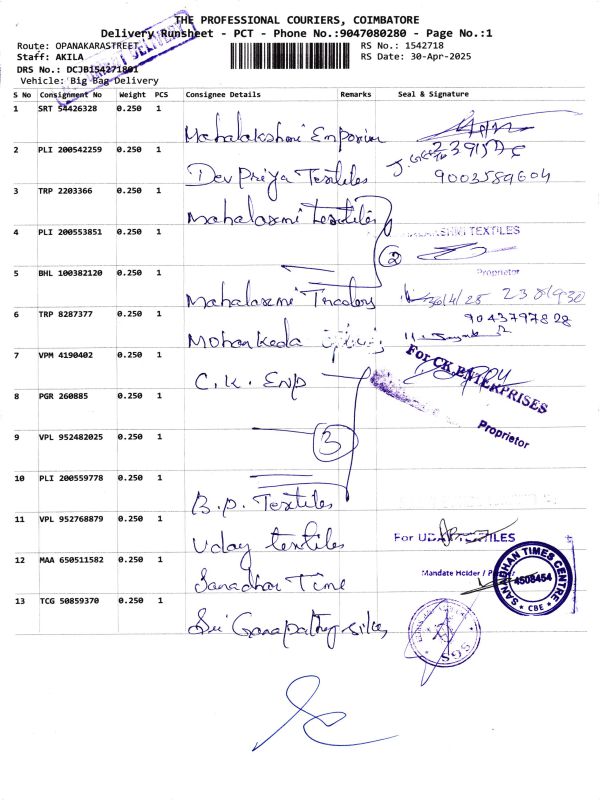 THE PROFESSIONAL COURIERS, COIMBATORE
Delivery Runsheet - PCT - Phone No.:9047080280 - Page No.:1
Route: OPANAKARASTREET
RS No.: 1542718
Staff: AKILA
RS Date: 30-Apr-2025
DRS No.: DCJB154271801
Vehicle: Big Bag Delivery
S No Consignment No Weight PCS Consignee Details Remarks Seal & Signature
1 SRT 54426328 0.250 1
Mahalakshmi Emporium
2 PLI 200542259 0.250 1
Dev Priya Textiles 9003589604
3 TRP 2203366 0.250 1
Mahalaxmi textiles
4 PLI 200553851 0.250 1
TEXTILES
2
5 BHL 100382120 0.250 1
Proprietor
Mahalaxmi Tricolors 30/4/25
6 TRP 8287377 0.250 1
9043797828
Mohankeda
7 VPM 4190402 0.250 1
For CK ENTERPRISES
C.K. Enp
8 PGR 260885 0.250 1
Proprietor
9 VPL 952482025 0.250 1
3
10 PLI 200559778 0.250 1
B.P. Textiles
11 VPL 952768879 0.250 1
Uday textiles
12 MAA 650511582 0.250 1
Mandate Holder /
SANADHAN TIMES CENTRE
4508454
* CBE *
Sanadhan Time
13 TCG 50859370 0.250 1
Sri Ganapathy silks
SGS